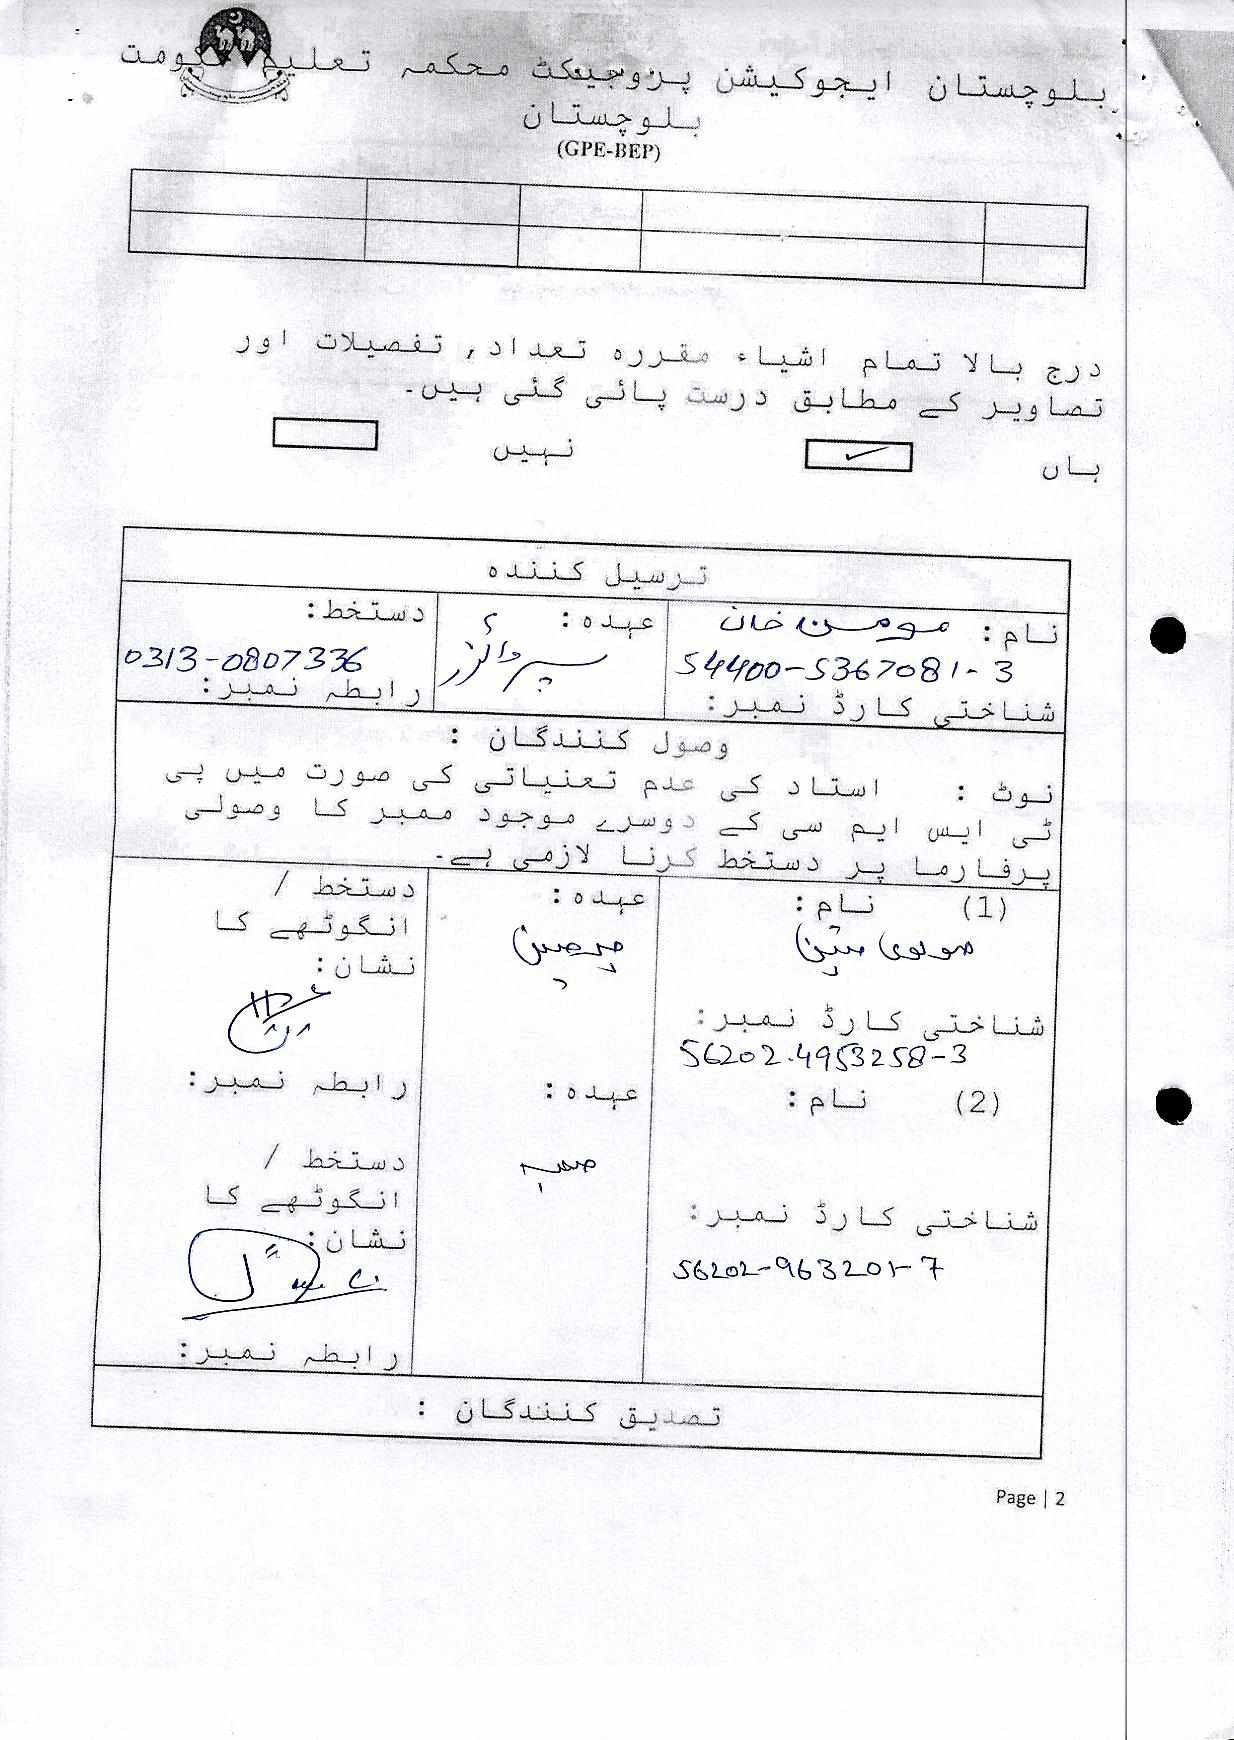 بلوچستان ایجوکیشن پروجیکٹ محکمہ تعلیم حکومت
بلوچستان
(GPE-BEP)
درج بالا تمام اشیاء مقررہ تعداد, تفصیلات اور
تصاویر کے مطابق درست پائی گئی ہیں۔
ہاں
نہیں
ترسیل کنندہ
نام: مومن خان
54400-5367081-3
شناختی کارڈ نمبر:
عہدہ:
سپروائزر
دستخط:
0313-0807336
رابطہ نمبر:
وصول کنندگان :
نوٹ : استاد کی عدم تعنیاتی کی صورت میں پی
ٹی ایس ایم سی کے دوسرے موجود ممبر کا وصولی
پرفارما پر دستخط کرنا لازمی ہے۔
(1) نام:
مولوی متین
شناختی کارڈ نمبر:
56202-4953258-3
عہدہ:
چیرمین
دستخط /
انگوٹھے کا
نشان:
رابطہ نمبر:
(2) نام:
شناختی کارڈ نمبر:
56202-963201-7
عہدہ:
دستخط /
انگوٹھے کا
نشان:
رابطہ نمبر:
تصدیق کنندگان :
Page | 2